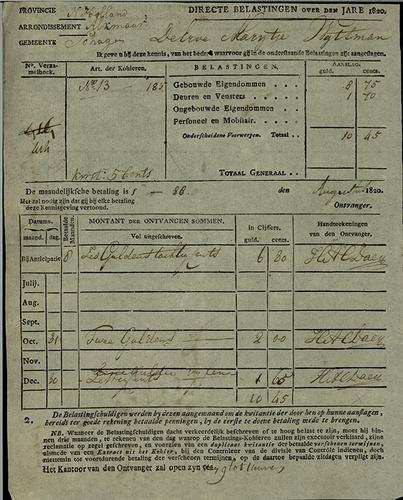 PROVINCIE N. Holland DIRECTE BELASTINGEN OVER DEN JARE 1820.
ARRONDISSEMENT Alkmaar
GEMEENTE Schagen
Ik geve u bij deze kennis, van het bedrag waarvoor gij in de onderstaande Belastingen zijt aangeslagen.
No. Verzamelboek. Art. der Kohieren. BELASTINGEN. AANSLAG.
guld. cents
No. 13 — 185 Gebouwde Eigendommen 8 75
Deuren en Vensters 1 70
Ongebouwde Eigendommen
Personeel en Mobilair.
Onderscheidene Voorwerpen. Totaal 10 45
5 Cents TOTAAL GENERAAL
De maandelijksche betaling is ƒ — 88. den August 1820.
Het zal nodig zijn dat gij bij elke betaling Ontvanger.
deze Kennisgeving vertoond.
Datums. Betaalde Maanden. MONTANT DER ONTVANGEN SOMMEN. in Cijffers. Handteekeningen
maand. dag. Vol uitgeschreven. guld. cents. van den Ontvanger.
Bij Anticipatie 8 Zes Guldens tachtig Cents 6 80
Julij.
Aug.
Sept.
Oct. 31 Twee Guldens 2 00
Nov.
Dec. 1 65
10 45
2. De Belastingschuldigen werden bij dezen aangemaand om de kwitantie der door hen op hunne aanslagen,
bereids ter goede rekening betaalde penningen, bij de eerste te doene betaling mede te brengen.
NB. Wanneer de Belastingschuldigen dacht verkeerdelijk beschreven of te hoog belast te zijn, moet hij binnen
drie maanden, te rekenen van den dag waarop de Belastings-Kohieren zullen zijn executoir verklaard, zijne
reclamatie op zegel geschreven, en voorzien van een duplicaat kwitantie van de verschenen termijnen,
alsmede van een Extract uit het Kohier, bij den Controleur van de divisie van Controle indienen, doch
niettemin tot voortdurende betaling der verschenen termijnen, op de daartoe bepaalde zitdagen verpligt zijn.
Het Kantoor van den Ontvanger zal open zyn